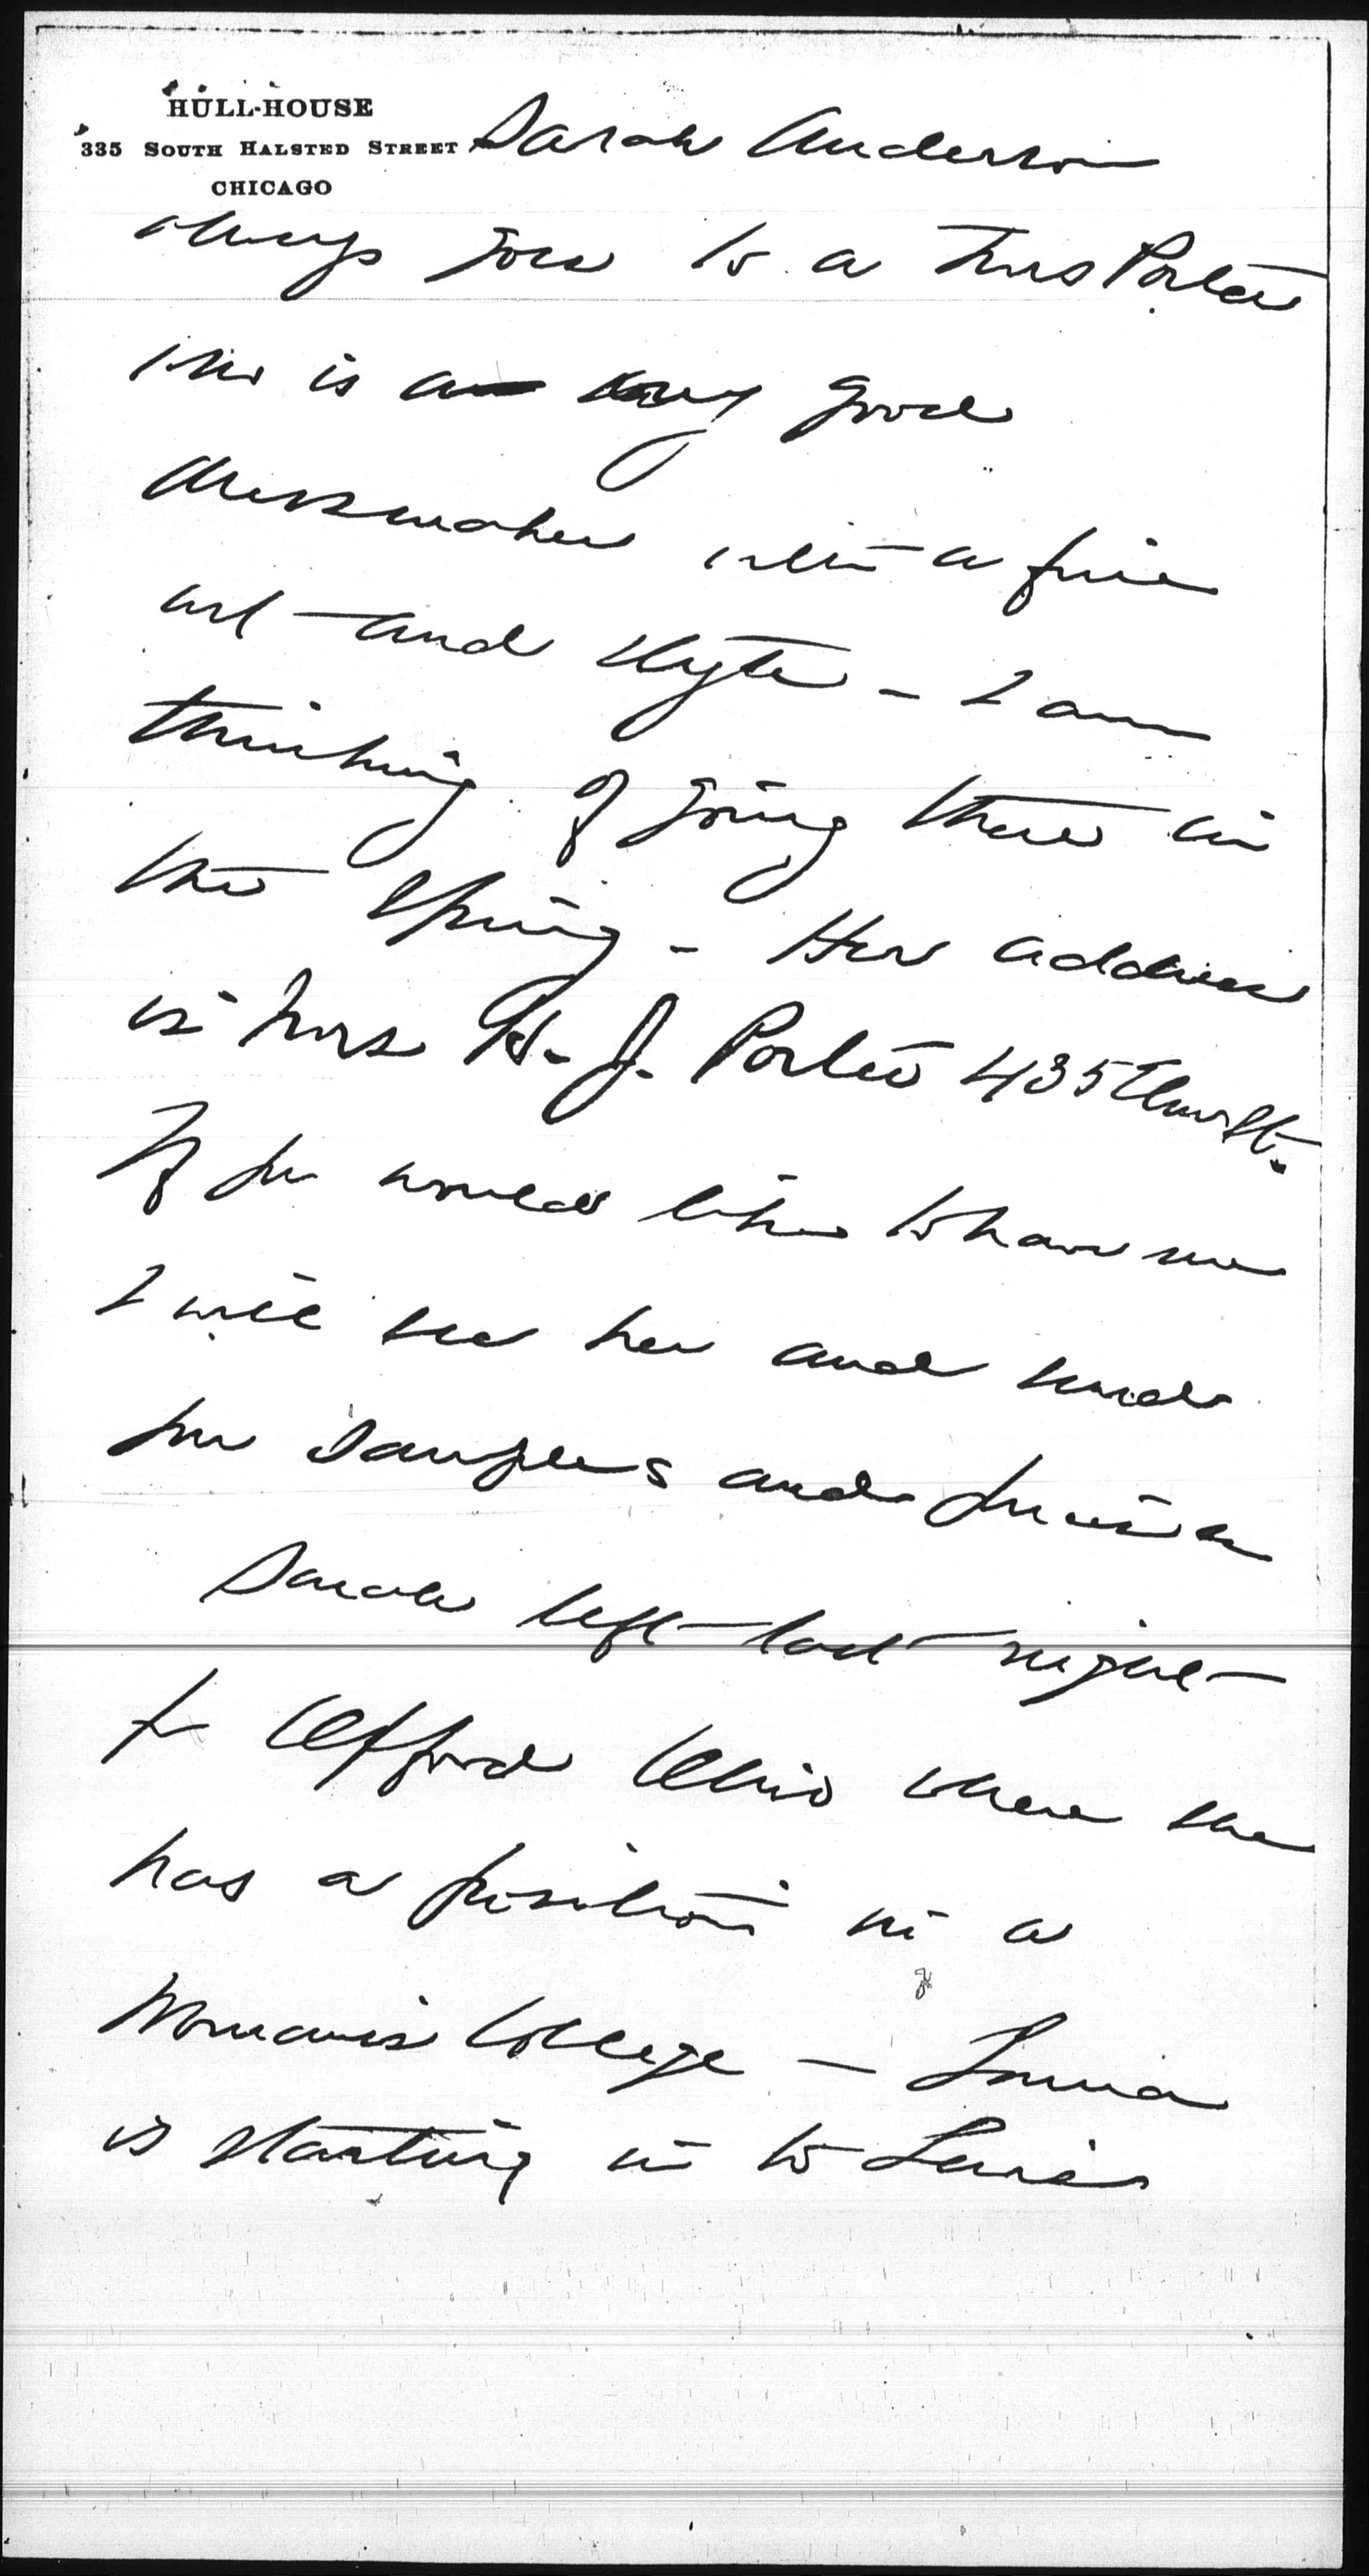 HULL-HOUSE
335 SOUTH HALSTED STREET
CHICAGO
Sarah Anderson
always goes to a Mrs Porter
who is a very good
dressmaker with a fine
cut and style - I am
thinking of going there in
the Spring - Her address
is Mrs H. J. Porter 435 Elm St.
If you would like to have me
I will see her and send
you samples and prices
Sarah left last night
for Oxford Ohio where she
has a position in a
Woman's College -
is starting in to